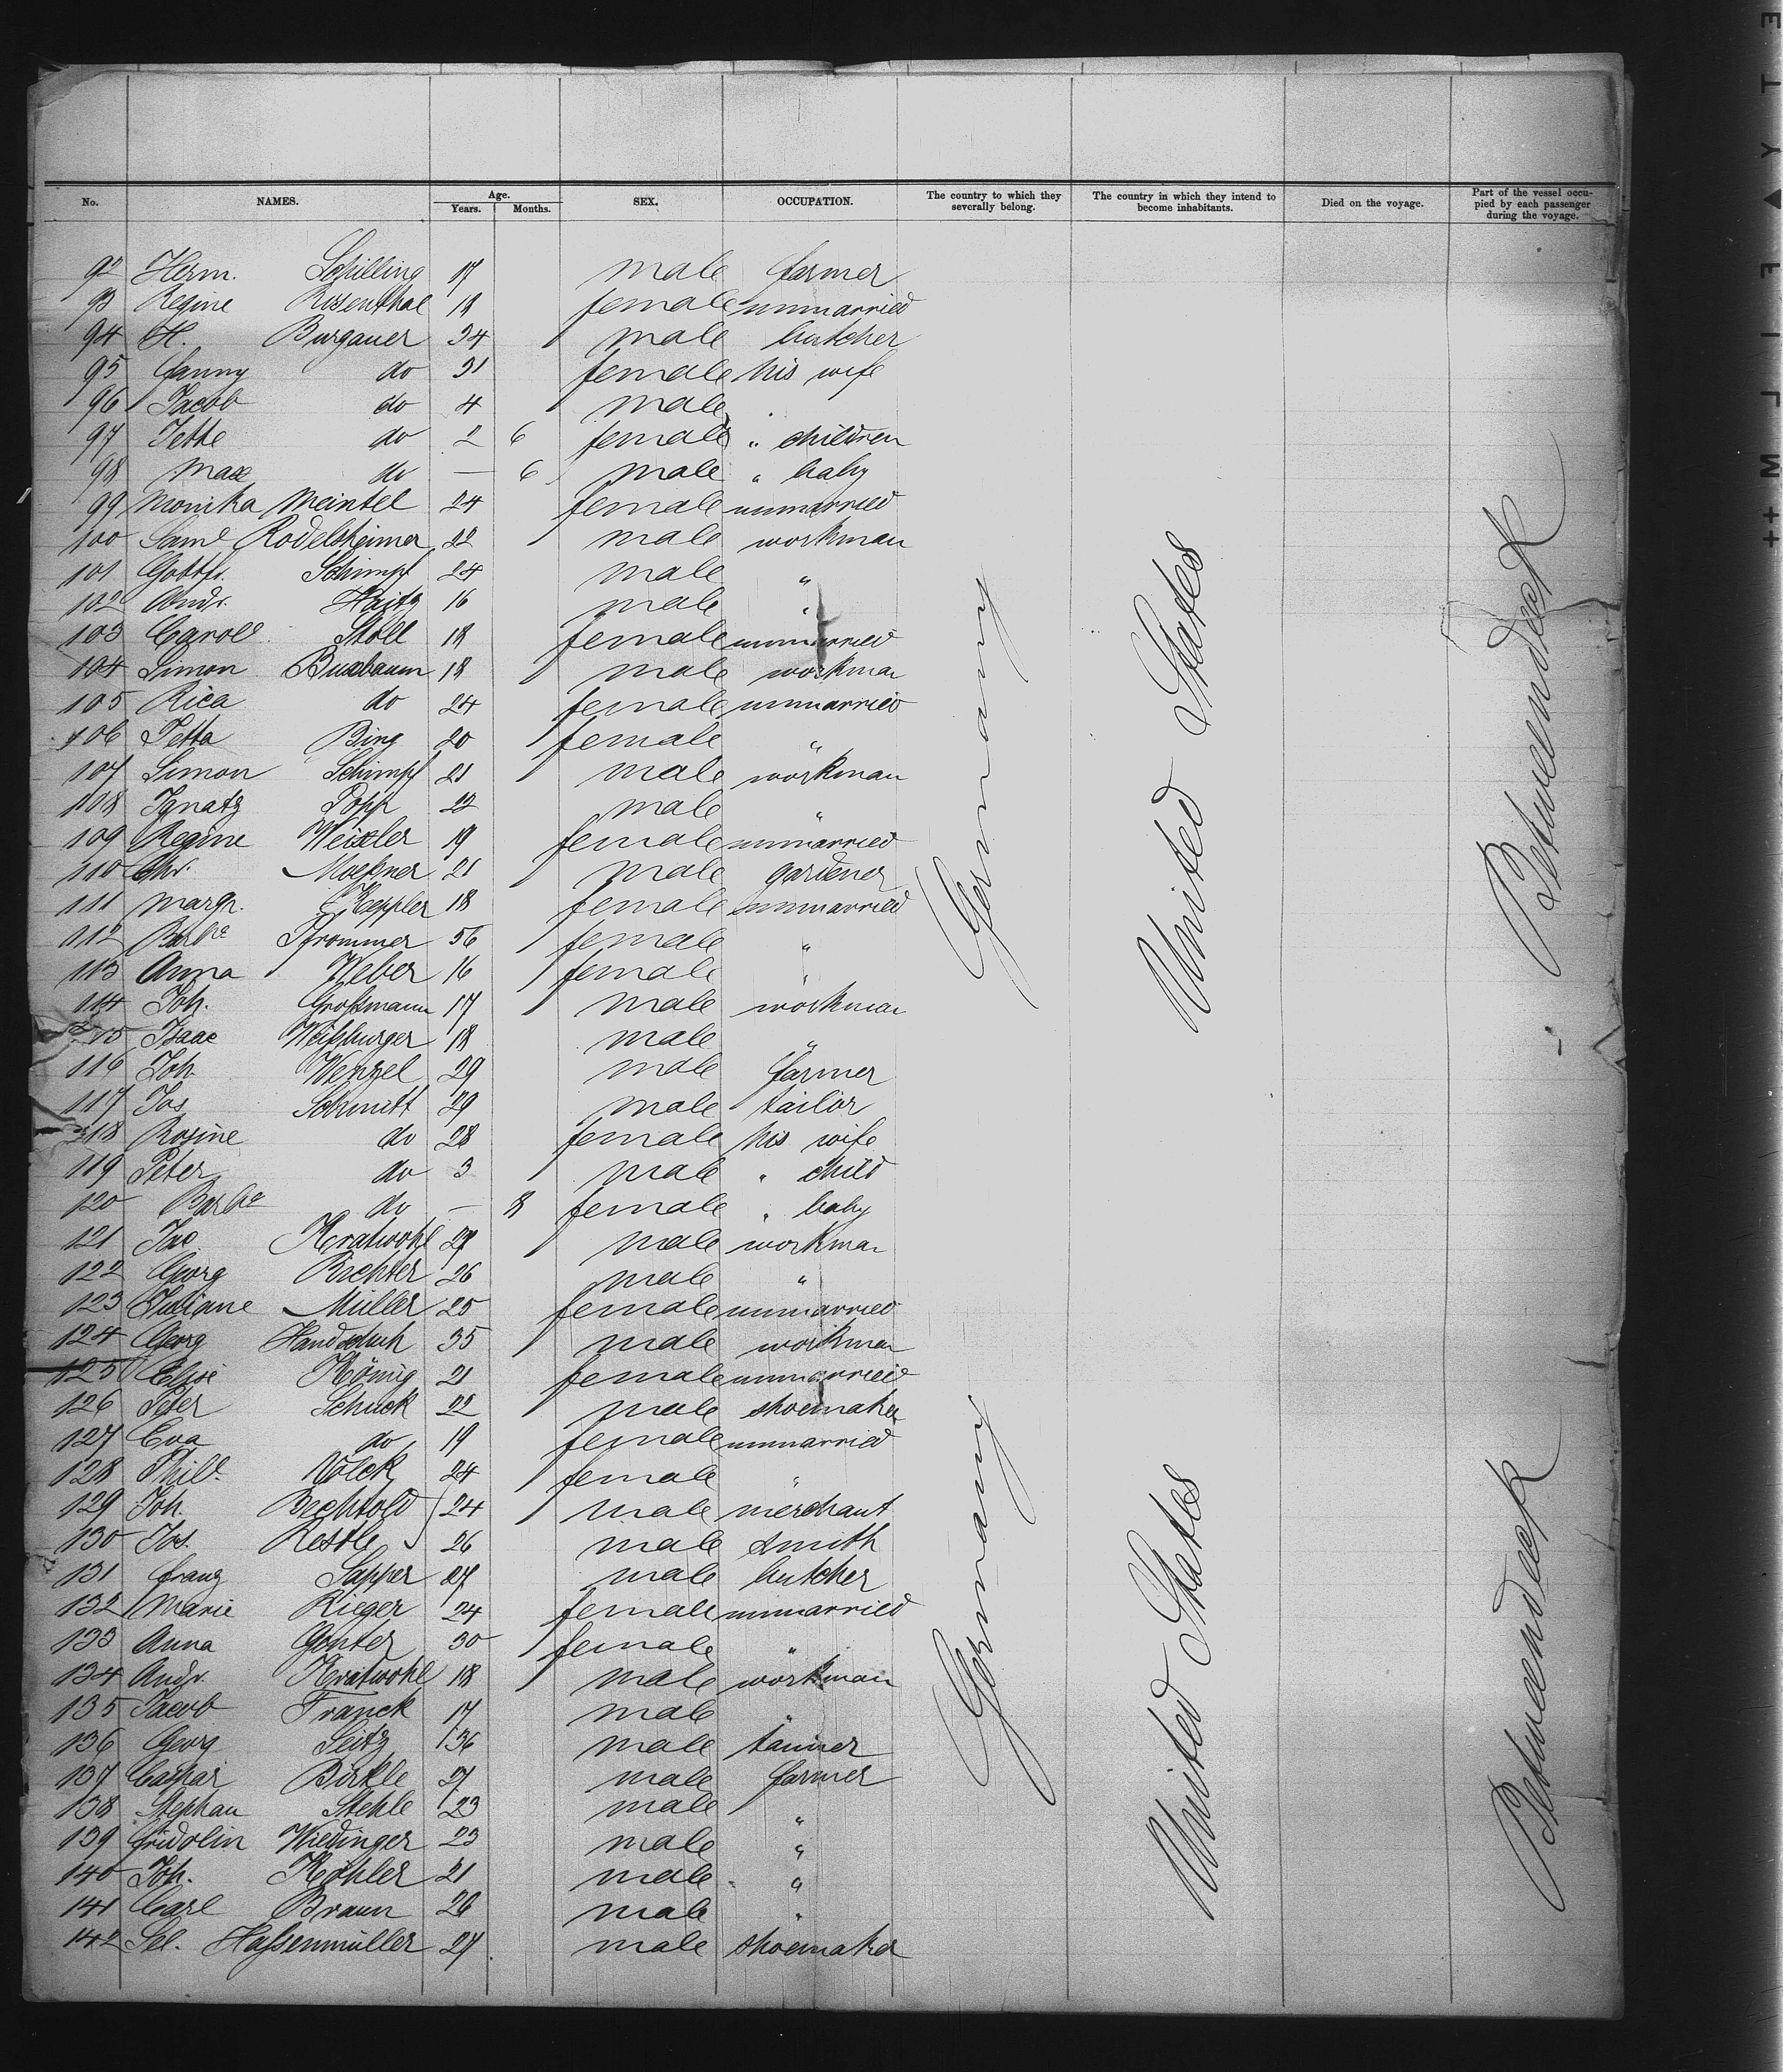 No. NAMES. Age. Years. Months. SEX. OCCUPATION. The country to which they severally belong. The country in which they intend to become inhabitants. Died on the voyage. Part of the vessel occupied by each passenger during the voyage.
92 Herm. Schilling 17 male farmer
93 Regine Rosenthal 18 female unmarried
94 H. Burgauer 34 male butcher
95 Fanny do 31 female his wife
96 Jacob do 4 male "
97 Jette do 2 6 female " children
98 Max do — 6 male " baby
99 Monika Meintel 24 female unmarried
100 Saml Rödelsheimer 22 male workman
101 Gottfr. Schimpf 24 male "
102 Andr. Haitz 16 male "
103 Carol. Stoll 18 female unmarried
104 Simon Buxbaum 18 male workman
105 Rica do 24 female unmarried
106 Jetta Bing 20 female "
107 Simon Schimpf 21 male workman
108 Ignatz Popp 22 male "
109 Regine Weixler 19 female unmarried
110 Chr. 21 male gardener
111 Margr. Keppler 18 female unmarried
112 Barba Pfrommer 56 female "
113 Anna Weber 16 female "
114 Joh. Großmann 17 male workman
115 Isaac Weißburger 18 male "
116 Joh. Wenzel 29 male farmer
117 Jos. Schmitt 29 male tailor
118 Rosine do 28 female his wife
119 Peter do 3 male " child
120 Barba do — 8 female " baby
121 Jac. Kratwohl 27 male workman
122 Georg Richter 26 male "
123 Juliane Müller 25 female unmarried
124 Georg Handschuh 35 male workman
125 Elise König 21 female unmarried
126 Peter Schuck 22 male shoemaker
127 Eva do 19 female unmarried
128 Phil. Völck 24 female "
129 Joh. Bechtold 24 male merchant
130 Jos. Restle 26 male smith
131 Franz Sapper 27 male butcher
132 Marie Rieger 24 female unmarried
133 Anna Gonter 30 female "
134 Andr. Kratwohl 18 male workman
135 Jacob Franck 17 male "
136 Georg Seitz 36 male tanner
137 Caspar Birkle 27 male farmer
138 Stephan Stehle 23 male "
139 Fridolin Wiedinger 23 male "
140 Joh. Köhler 21 male "
141 Carl Braun 26 male "
142 Sel. Haßenmüller 27 male shoemaker
Germany
United States
Betweendeck
Germany
United States
Betweendeck